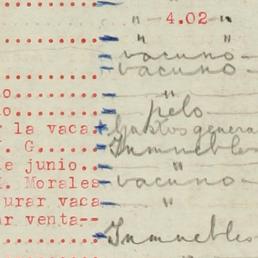 " 4.02 "
" "
vacuno
vacuno
o..... pelo
r la vaca Gastos genera
. G..... Inmuebles
e junio.. "
. Morales vacuno
urar vaca "
ar venta--
Inmuebles